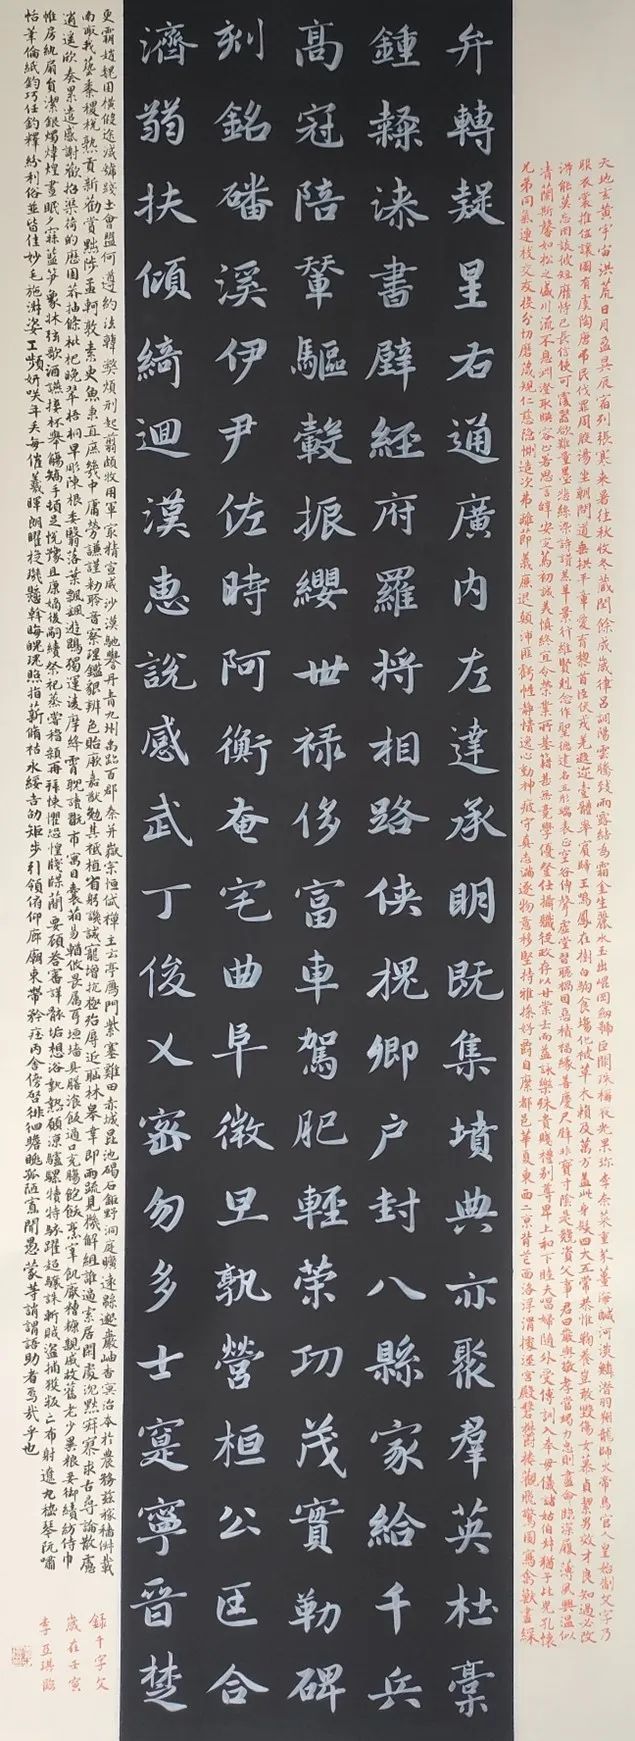 天地玄黃宇宙洪荒日月盈昃辰宿列張寒來暑往秋收冬藏閏餘成歲律呂調陽雲騰致雨露結為霜金生麗水玉出崑岡劍號巨闕珠稱夜光果珍李柰菜重芥薑海鹹河淡鱗潛羽翔龍師火帝鳥官人皇始制文字乃
服衣裳推位讓國有虞陶唐弔民伐罪周發殷湯坐朝問道垂拱平章愛育黎首臣伏戎羌遐邇壹體率賓歸王鳴鳳在樹白駒食場化被草木賴及萬方蓋此身髮四大五常恭惟鞠養豈敢毀傷女慕貞潔男效才良知過必改
得能莫忘罔談彼短靡恃己長信使可覆器欲難量墨悲絲染詩讚羔羊景行維賢剋念作聖德建名立形端表正空谷傳聲虛堂習聽禍因惡積福緣善慶尺璧非寶寸陰是競資父事君曰嚴與敬孝當竭力忠則盡命臨深履薄夙興溫似
清蘭斯馨如松之盛川流不息淵澄取映容止若思言辭安定篤初誠美慎終宜令榮業所基籍甚無竟學優登仕攝職從政存以甘棠去而益詠樂殊貴賤禮別尊卑上和下睦夫唱婦隨外受傅訓入奉母儀諸姑伯叔猶子比兒孔懷
兄弟同氣連枝交友投分切磨箴規仁慈隱惻造次弗離節義廉退顛沛匪虧性靜情逸心動神疲守真志滿逐物意移堅持雅操好爵自縻都邑華夏東西二京背芒面洛浮渭據涇宮殿盤鬱樓觀飛驚圖寫禽獸畫綵
弁轉疑星右通廣內左達承明既集墳典亦聚群英杜稾
鍾隸漆書壁經府羅將相路俠槐卿户封八縣家給千兵
高冠陪輦驅轂振纓世祿侈富車駕肥輕榮功茂實勒碑
刻銘磻溪伊尹佐時阿衡奄宅曲阜微旦孰營桓公匡合
濟弱扶傾綺迴漢惠說感武丁俊乂密勿多士寔寧晉楚
更霸趙魏困橫假途滅虢踐土會盟何遵約法韓弊煩刑起翦頗牧用軍最精宣威沙漠馳譽丹青九州禹跡百郡秦并嶽宗恒岱禪主云亭鴈門紫塞雞田赤城昆池碣石鉅野洞庭曠遠緜邈巖岫杳冥治本於農務茲稼穡俶載
南畝我藝黍稷稅熟貢新勸賞黜陟孟軻敦素史魚秉直庶幾中庸勞謙謹勑聆音察理鑑貌辨色貽厥嘉猷勉其祗植省躬譏誡寵增抗極殆辱近恥林皋幸即兩疏見機解組誰逼索居閑處沉默寂寥求古尋論散慮
逍遙欣奏累遣慼謝歡招渠荷的歷園莽抽條枇杷晚翠梧桐早彫陳根委翳落葉飄颻遊鵾獨運凌摩絳霄耽讀翫市寓目囊箱易輶攸畏屬耳垣墻具膳飡飯適口充腸飽飫烹宰飢厭糟糠親戚故舊老少異粮妾御績紡侍巾
帷房紈扇員潔銀燭煒煌晝眠夕寐藍笋象牀弦歌酒讌接杯舉觴矯手頓足悅豫且康嫡後嗣續祭祀蒸嘗稽顙再拜悚懼恐惶牋牒簡要顧答審詳骸垢想浴執熱願涼驢騾犢特駭躍超驤誅斬賊盜捕獲叛亡布射遼丸嵇琴阮嘯
恬筆倫紙鈞巧任釣釋紛利俗並皆佳妙毛施淑姿工嚬妍笑年矢每催羲暉朗曜琁璣懸斡晦魄環照指薪脩祜永綏吉劭矩步引領俯仰廊廟束帶矜莊內舍傍啓徘徊瞻眺孤陋寡聞愚蒙等誚謂語助者焉哉乎也
錄千字文
歲在壬寅
李亞琪臨